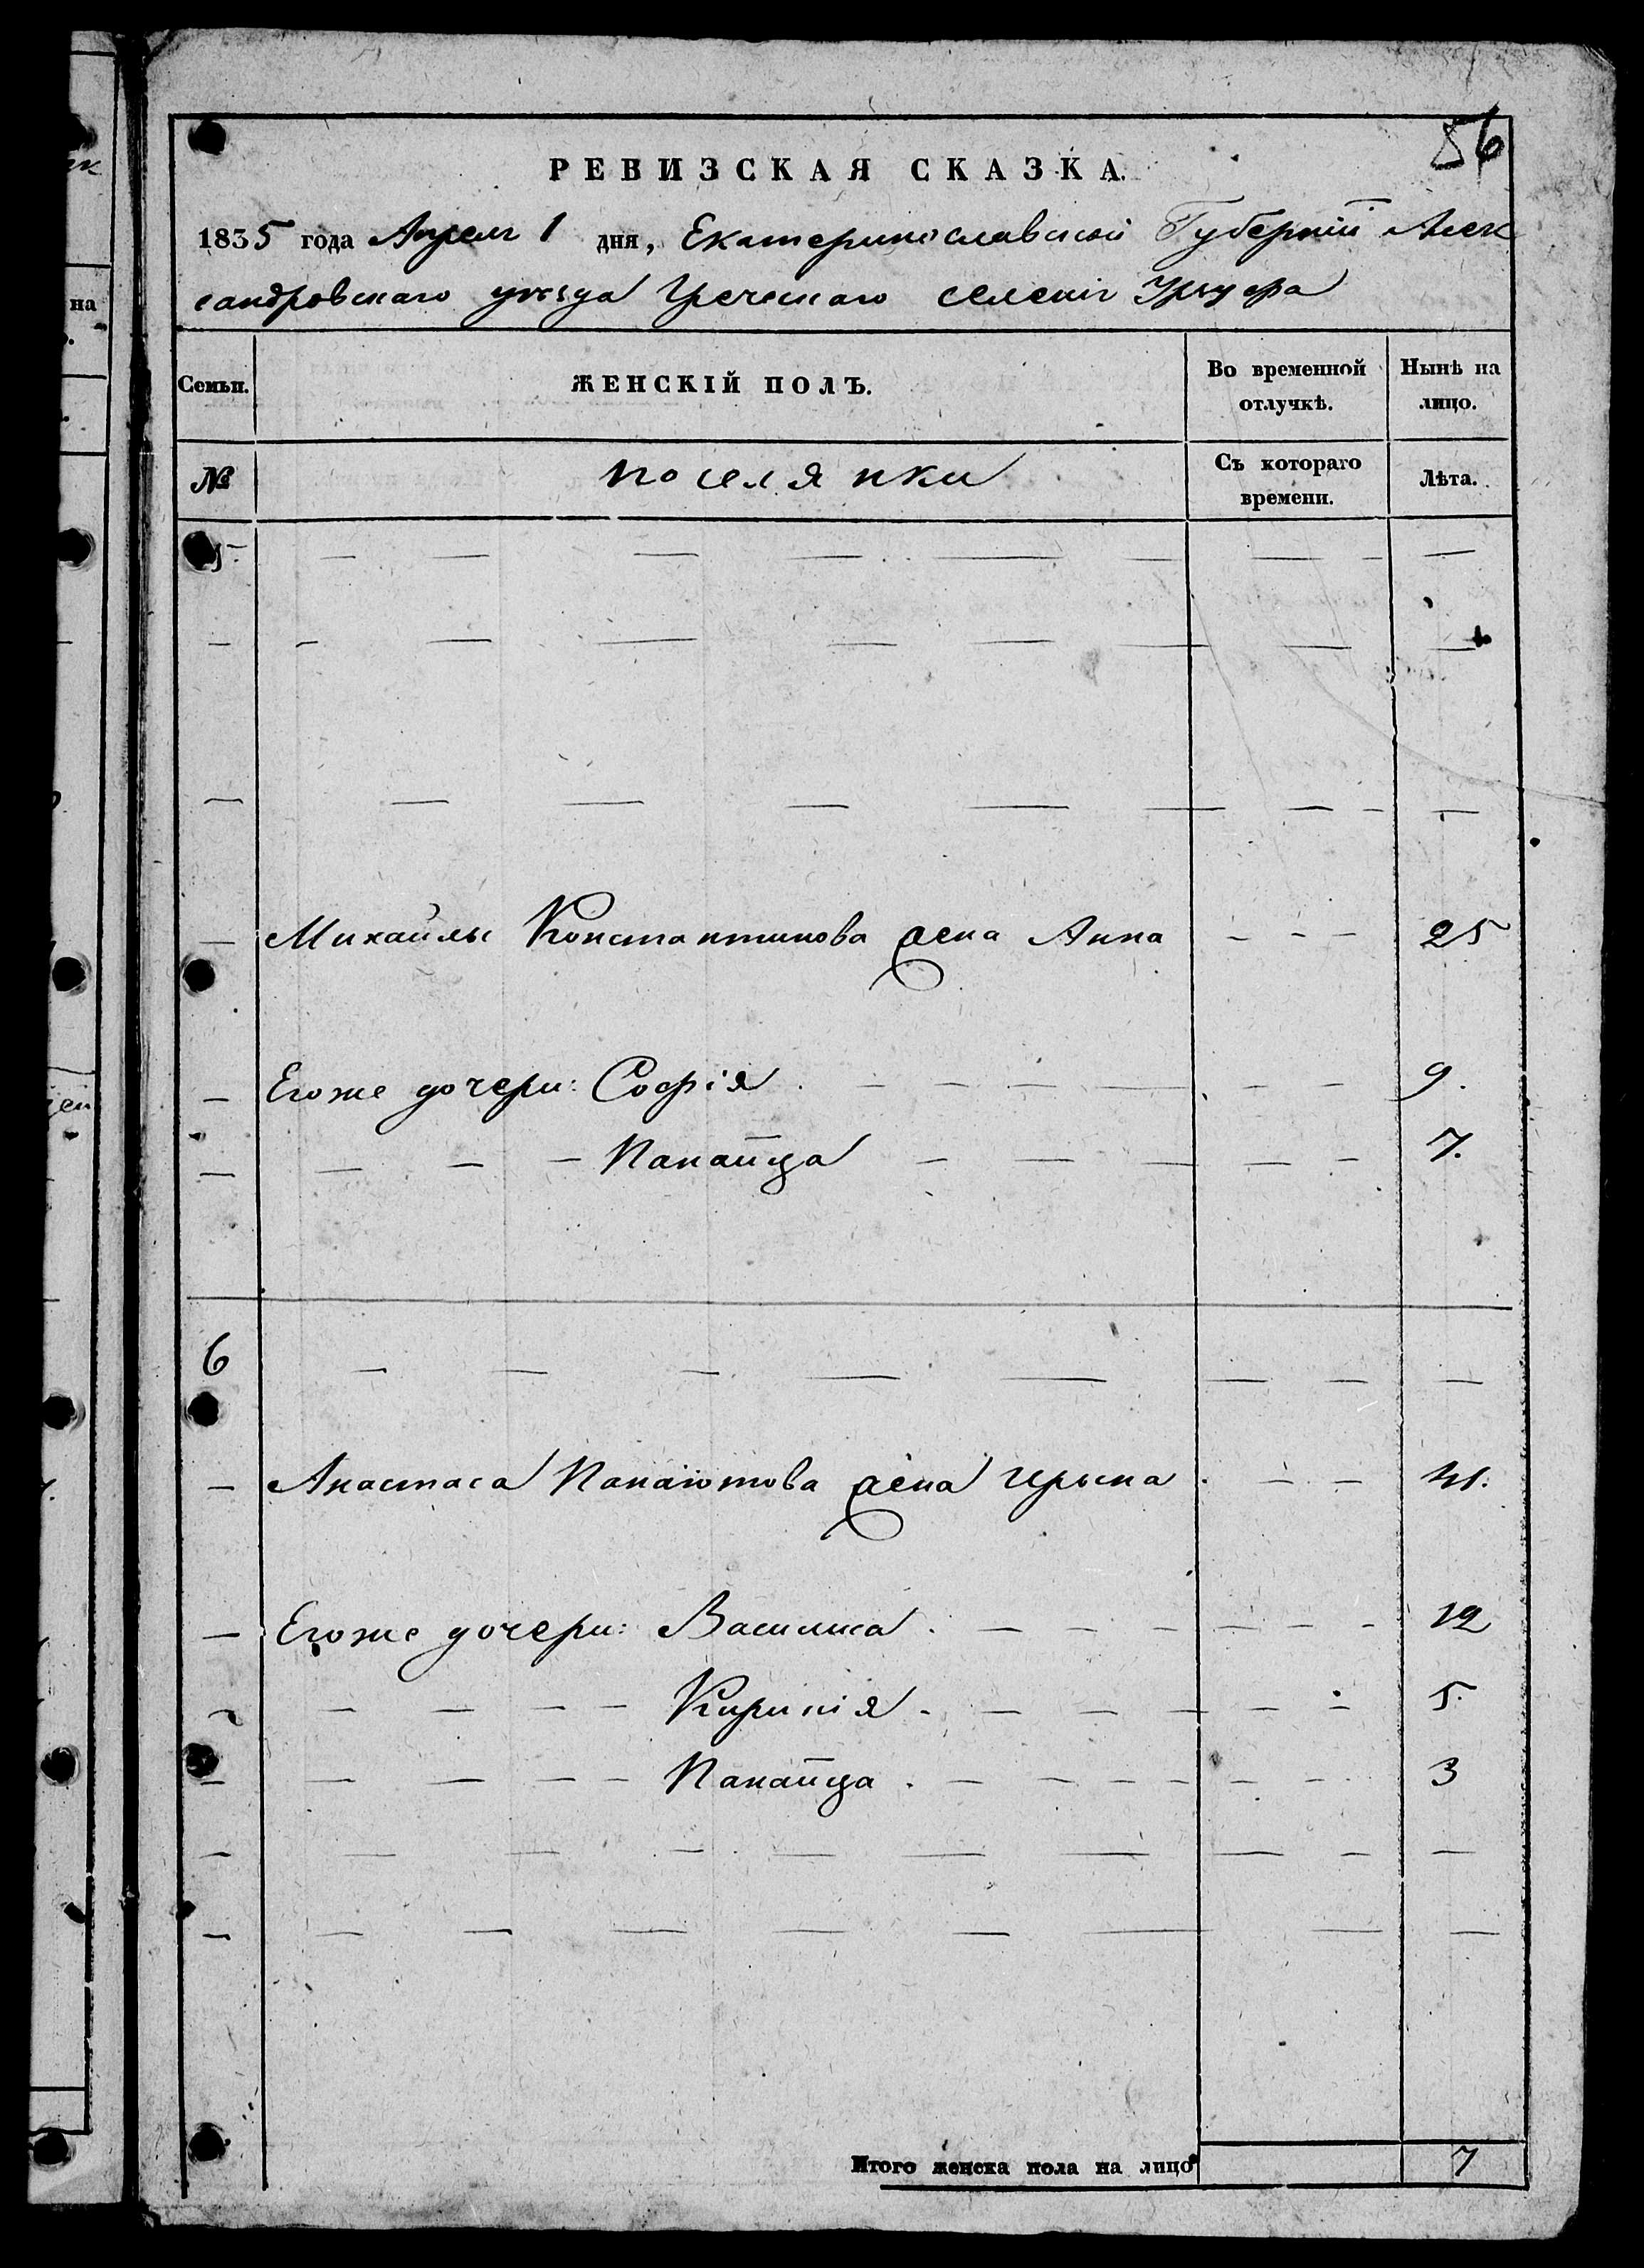 56
РЕВИЗСКАЯ СКАЗКА.
1835 года Апреля 1 дня, Екатеринославской Губерніи Алек
сандровскаго уезда Греческаго селенія Урзуфа
Семьи. ЖЕНСКІЙ ПОЛЪ. Во временной отлучкѣ. Нынѣ на лицо.
№ поселянки Съ котораго времени. Лѣта.
5
Михайлы Константинова жена Анна 25
Егоже дочери: Софія 9.
Панаица 7.
6
Анастаса Панаіотова жена Ирына 41.
Егоже дочери: Василиса 12
Кирикія 5.
Панаица 3
Итого женска пола на лицо 7